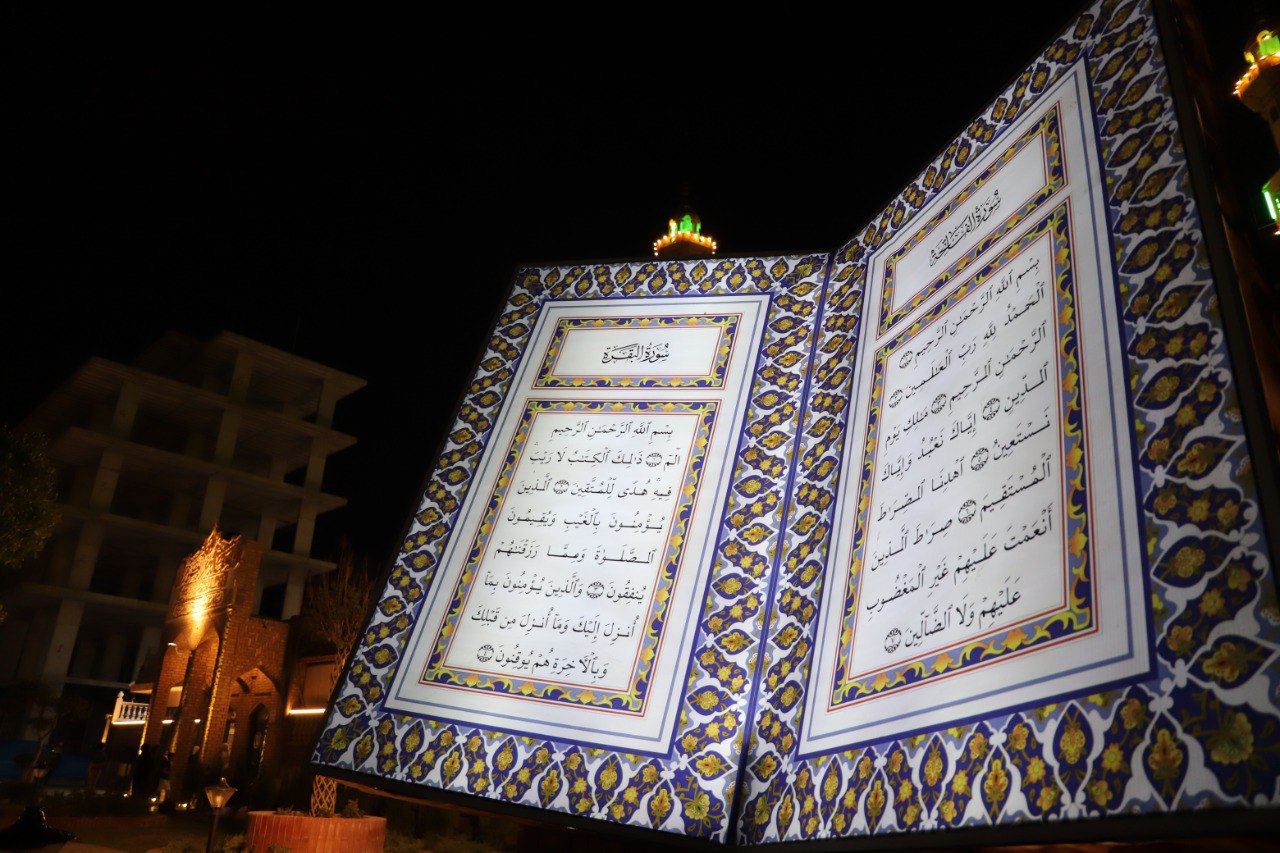 سُورَةُ الفَاتِحَة
بِسْمِ ٱللَّهِ ٱلرَّحْمَٰنِ ٱلرَّحِيمِ ١
ٱلْحَمْدُ لِلَّهِ رَبِّ ٱلْعَٰلَمِينَ ٢
ٱلرَّحْمَٰنِ ٱلرَّحِيمِ ٣ مَٰلِكِ يَوْمِ
ٱلدِّينِ ٤ إِيَّاكَ نَعْبُدُ وَإِيَّاكَ
نَسْتَعِينُ ٥ ٱهْدِنَا ٱلصِّرَٰطَ
ٱلْمُسْتَقِيمَ ٦ صِرَٰطَ ٱلَّذِينَ
أَنْعَمْتَ عَلَيْهِمْ غَيْرِ ٱلْمَغْضُوبِ
عَلَيْهِمْ وَلَا ٱلضَّآلِّينَ ٧
سُورَةُ البَقَرَةِ
بِسْمِ ٱللَّهِ ٱلرَّحْمَٰنِ ٱلرَّحِيمِ
الٓمٓ ١ ذَٰلِكَ ٱلْكِتَٰبُ لَا رَيْبَ ۛ
فِيهِ ۛ هُدًى لِّلْمُتَّقِينَ ٢ ٱلَّذِينَ
يُؤْمِنُونَ بِٱلْغَيْبِ وَيُقِيمُونَ
ٱلصَّلَوٰةَ وَمِمَّا رَزَقْنَٰهُمْ
يُنفِقُونَ ٣ وَٱلَّذِينَ يُؤْمِنُونَ بِمَآ
أُنزِلَ إِلَيْكَ وَمَآ أُنزِلَ مِن قَبْلِكَ
وَبِٱلْءَاخِرَةِ هُمْ يُوقِنُونَ ٤